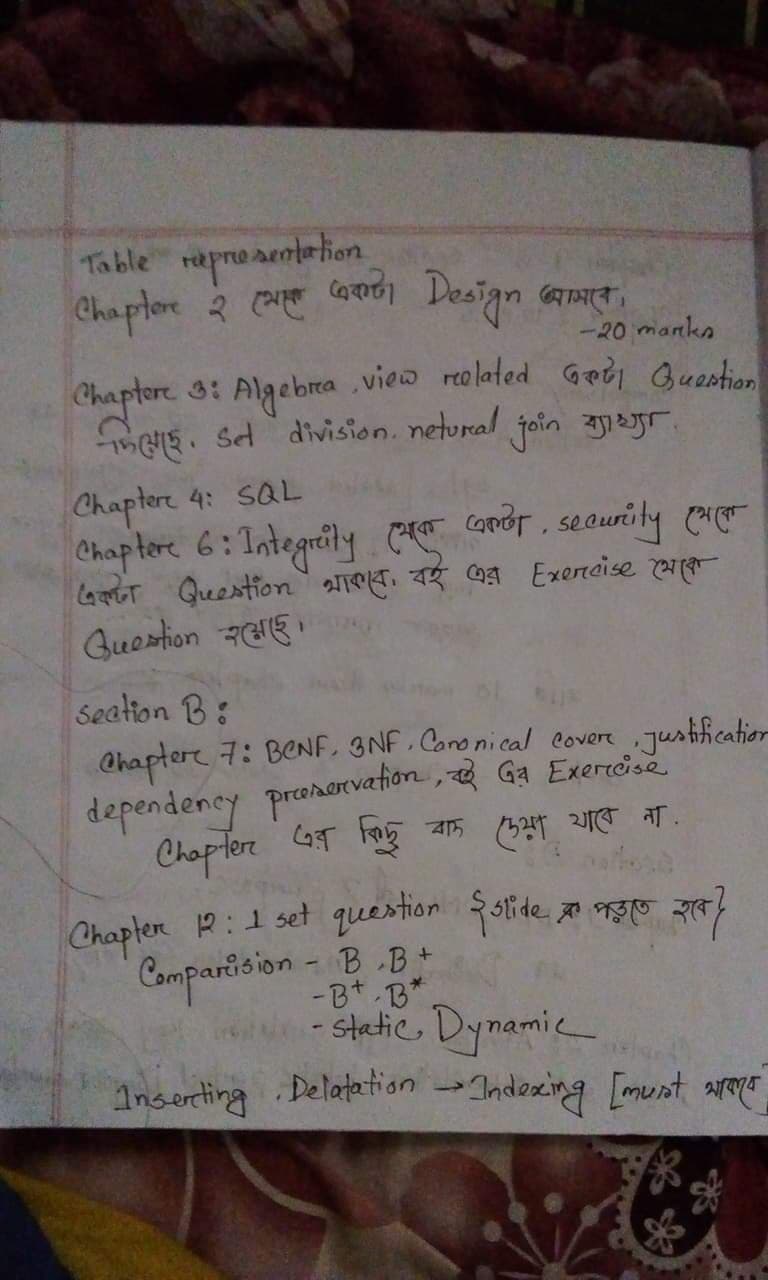 Table representation
Chapter 2 থেকে একটা Design আসবে।
-20 marks
Chapter 3: Algebra, view related একটা Question
দিয়েছে. set division. netural join ব্যাখ্যা.
Chapter 4: SQL
Chapter 6: Integrity থেকে একটা, security থেকে
একটা Question থাকবে। বই এর Exercise থেকে
Question হয়েছে।
Section B:
Chapter 7: BCNF, 3NF, Canonical cover, justification
dependency preservation, বই এর Exercise
Chapter এর কিছু বাদ দেয়া যাবে না.
Chapter 12: 1 set question {slide পড়তে হবে}
Comparision - B, B+
- B+, B*
- Static, Dynamic
Inserting, Delatation → Indexing [must থাকবে]